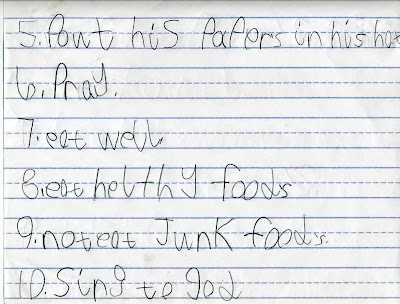 5. Pout his Papers in his hat
6. Pray.
7. eat well.
8. eat helthy foods
9. not eat Junk foods.
10. Sing to god